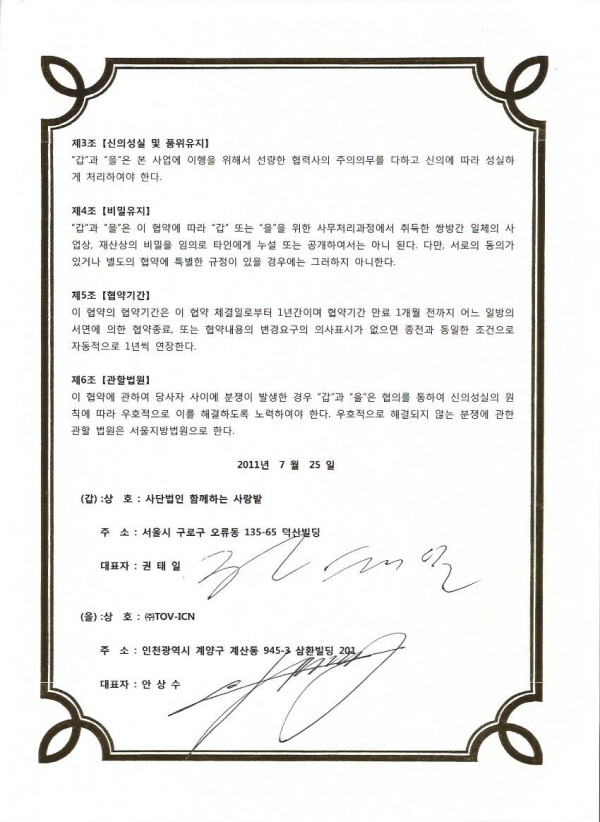 제3조 【신의성실 및 품위유지】
"갑"과 "을"은 본 사업에 이행을 위해서 선량한 협력사의 주의의무를 다하고 신의에 따라 성실하
게 처리하여야 한다.
제4조 【비밀유지】
"갑"과 "을"은 이 협약에 따라 "갑" 또는 "을"을 위한 사무처리과정에서 취득한 쌍방간 일체의 사
업상, 재산상의 비밀을 임의로 타인에게 누설 또는 공개하여서는 아니 된다. 다만, 서로의 동의가
있거나 별도의 협약에 특별한 규정이 있을 경우에는 그러하지 아니한다.
제5조 【협약기간】
이 협약의 협약기간은 이 협약 체결일로부터 1년간이며 협약기간 만료 1개월 전까지 어느 일방의
서면에 의한 협약종료, 또는 협약내용의 변경요구의 의사표시가 없으면 종전과 동일한 조건으로
자동적으로 1년씩 연장한다.
제6조 【관할법원】
이 협약에 관하여 당사자 사이에 분쟁이 발생한 경우 "갑"과 "을"은 협의를 통하여 신의성실의 원
칙에 따라 우호적으로 이를 해결하도록 노력하여야 한다. 우호적으로 해결되지 않는 분쟁에 관한
관할 법원은 서울지방법원으로 한다.
2011년 7 월 25 일
(갑) :상 호 : 사단법인 함께하는 사랑밭
주 소 : 서울시 구로구 오류동 135-65 덕산빌딩
대표자 : 권 태 일
권 태 일
(을) :상 호 : ㈜TOV-ICN
주 소 : 인천광역시 계양구 계산동 945-3 삼환빌딩 201
대표자 : 안 상 수